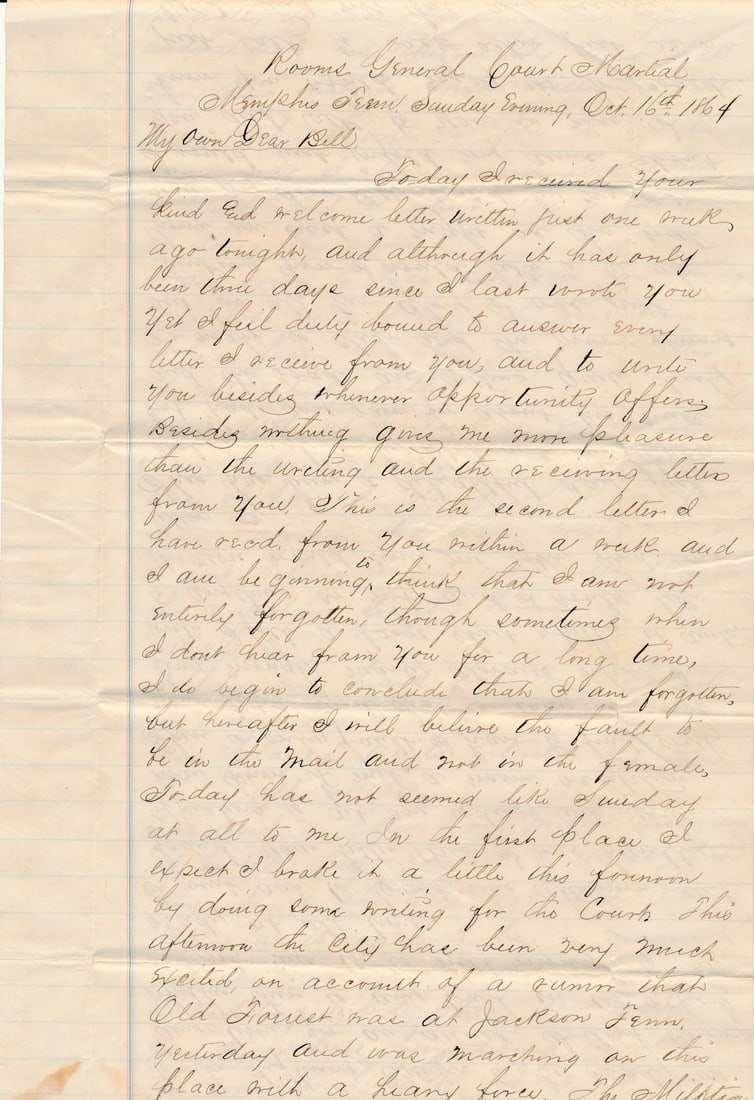 Rooms General Court Martial
Memphis Tenn. Sunday Evening, Oct. 16th 1864
My Own Dear Bell.
To-day I received your
kind and welcome letter written just one week
ago tonight, and although it has only
been three days since I last wrote you
yet I feel duty bound to answer every
letter I receive from you, and to write
you besides whenever opportunity offers,
Besides nothing gives me more pleasure
than the writing and the receiving letters
from you. This is the second letter I
have recd. from you within a week and
I am beginning to think that I am not
entirely forgotten, though sometimes when
I dont hear from you for a long time,
I do begin to conclude that I am forgotten,
but hereafter I will believe the fault to
be in the mail and not in the female,
To-day has not seemed like Sunday
at all to me. In the first place I
expect I broke it a little this forenoon
by doing some writing for the Court. This
afternoon the City has been very much
excited, on account of a rumor that
Old Forrest was at Jackson Tenn.
yesterday and was marching on this
place with a heavy force. The Militia